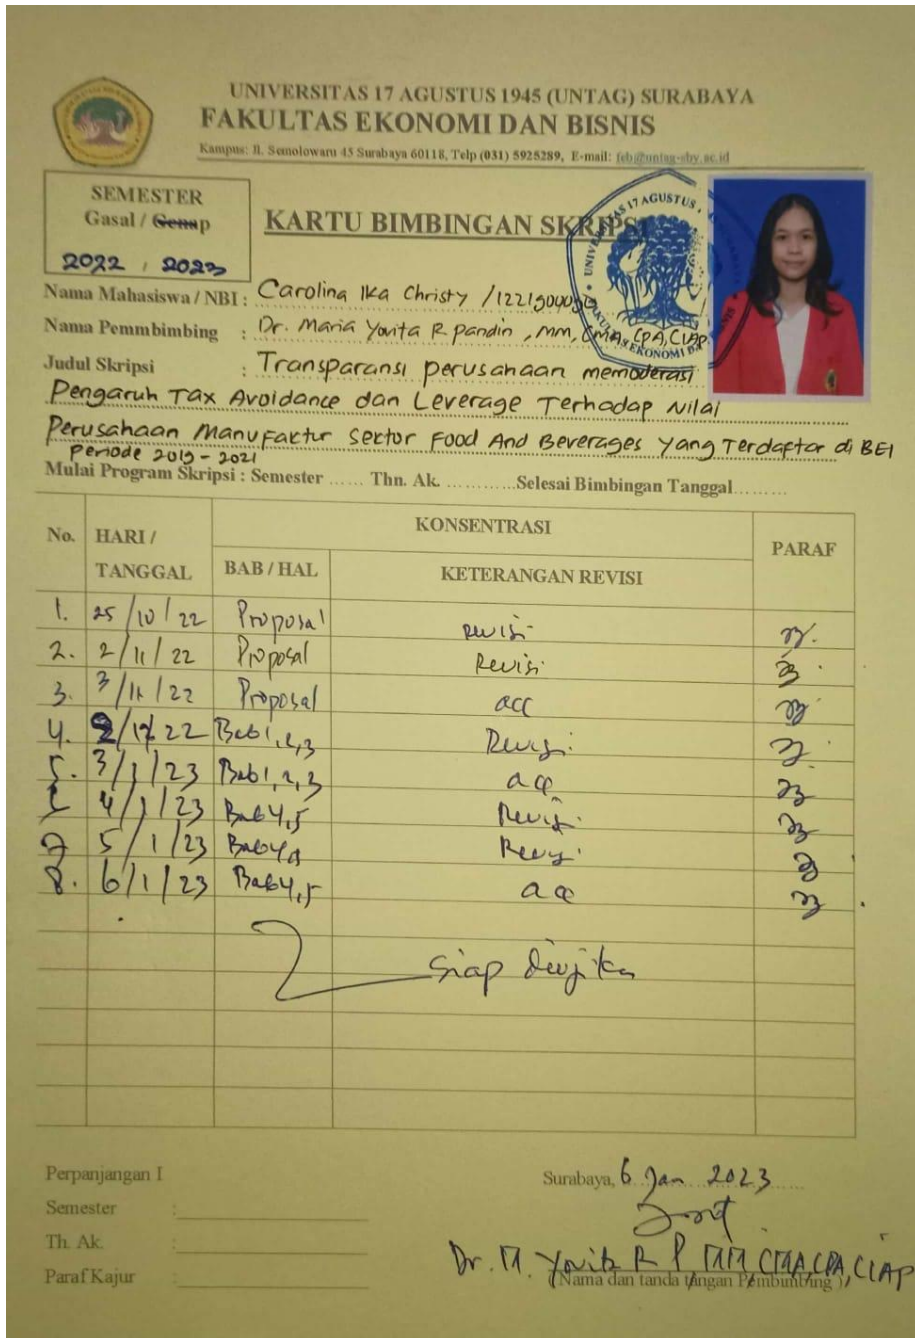 UNIVERSITAS 17 AGUSTUS 1945 (UNTAG) SURABAYA
FAKULTAS EKONOMI DAN BISNIS
Kampus: Jl. Semolowaru 45 Surabaya 60118, Telp (031) 5925289, E-mail: feb@untag-sby.ac.id
SEMESTER
Gasal / Genap
2022 / 2023
KARTU BIMBINGAN SKRIPSI
Nama Mahasiswa / NBI : Carolina Ika Christy /
Nama Pemmbimbing : Dr. Maria Yovita R pandin, MM, CMA, CPA, CIAP
Judul Skripsi : Transparansi perusahaan memoderasi
Pengaruh Tax Avoidance dan Leverage Terhadap Nilai
Perusahaan Manufaktur Sektor Food And Beverages Yang Terdaftar di BEI
Periode 2019 - 2021
Mulai Program Skripsi : Semester ...... Thn. Ak. ............Selesai Bimbingan Tanggal.........
No. HARI / TANGGAL KONSENTRASI PARAF
BAB / HAL KETERANGAN REVISI
1. 25/10/22 Proposal Revisi
2. 2/11/22 Proposal Revisi
3. 3/11/22 Proposal acc
4. 2/12/22 Bab 1,2,3 Revisi
5. 3/1/23 Bab 1,2,3 acc
4/1/23 Bab 4,5 Revisi
7 5/1/23 Bab 4,5 Revisi
8. 6/1/23 Bab 4,5 acc
Siap diujikan
Perpanjangan I
Surabaya, 6 Jan 2023
Semester :
Th. Ak. :
Paraf Kajur :
Dr. M. Yovita R P, MM, CMA, CPA, CIAP
( Nama dan tanda tangan Pembimbing )